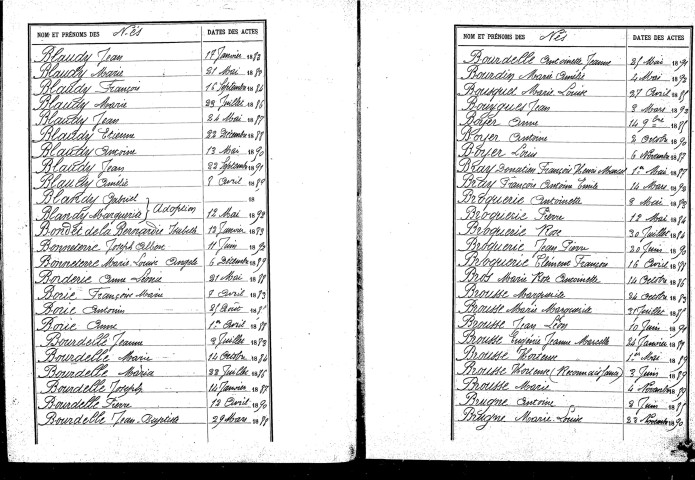 NOM ET PRÉNOMS DES Nés DATES DES ACTES
Blaudy Jean 17 Janvier 1883
Blaudy Marie 21 Mai 1883
Blaudy François 16 Septembre 1884
Blaudy Marie 22 Juillet 1886
Blaudy Jean 24 Mai 1887
Blaudy Etienne 22 Décembre 1888
Blaudy Antoine 13 Mai 1890
Blaudy Jean 22 Septembre 1891
Blaudy Amélie 8 Avril 1889
Blandy Gabriel 18
Blandy Marguerite } Adoption 12 Mai 1892
Bondet de la Bernardie 12 Janvier 1883
Bonneterre Joseph 11 Juin 1893
Bonneterre Marie Louise Angèle 6 Décembre 1889
Borderie Anne Léonie 21 Mai 1888
Borie François Marie 8 Avril 1883
Borie Antonin Août 18
Borie Anne 1er Avril 18
Bourdelle Jeanne 2 Juillet 1883
Bourdelle Marie 14 Octobre 1884
Bourdelle Maria 22 Juillet 1886
Bourdelle Joseph 14 Janvier 1887
Bourdelle Pierre 12 Avril 1890
Bourdelle Jean Baptiste 29 Mars 18
NOM ET PRÉNOMS DES Nés DATES DES ACTES
Bourdelle Antoinette Jeanne Mai 1891
Bourdin Marie Amélie 4 Mai 1893
Bousquet Marie Louise 27 Avril 18
Bouyques Jean 3 Mars 1892
Boyer Anne 14 9bre 18
Boyer Antoine 2 Octobre 1890
Boyer Louis 6 Novembre 1887
Bray Donatien François Henri Marcel 1er Mai 1887
Bray François Antoine Emile 14 Mars 1890
Broquerie Antoinette Mai 1883
Broquerie Pierre 12 Mai 1884
Broquerie Rose 30 Juillet 1886
Broquerie Jean Pierre 20 Juin 1890
Broquerie Clément François 16 Avril 18
Bros Marie Rose Antoinette 14 Octobre 1886
Brousse Marguerite 24 Octobre 1883
Brousse Marie Marguerite Juillet 18
Brousse Jean Léon 10 Juin 1891
Brousse Eugénie Jeanne Marcelle 24 Janvier 1889
Brousse Hortense 1er Mai 1889
Brousse Hortense (Reconnaissance) 3 Juin 1889
Brousse Marie 4 Novembre 1889
Brugne Antoine 2 Juin 18
Brugne Marie Louise 23 Novembre 1890